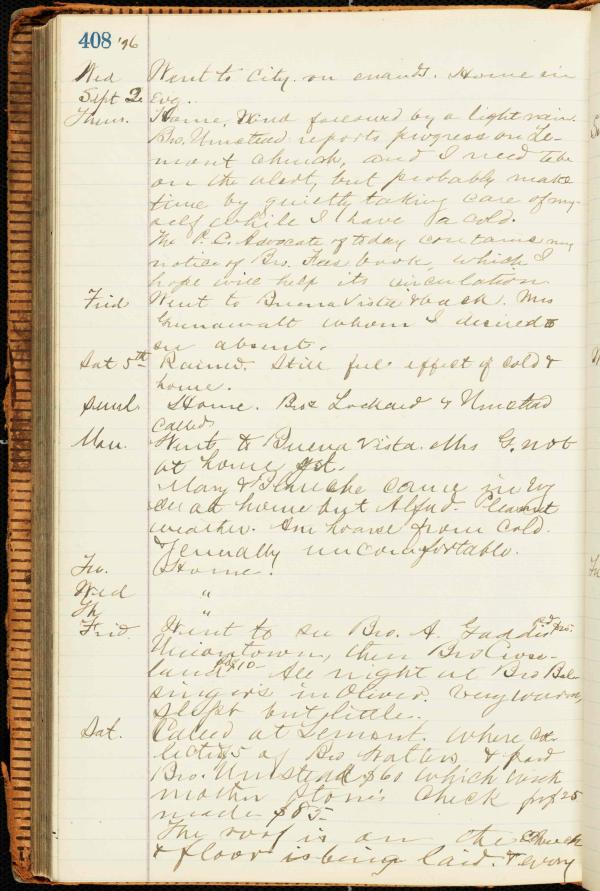 408 '96
Wed Went to City on errands. Home in
Sept 2. Evg.
Thurs. Home, Wind followed by a light rain.
Bro. Umstead reports progress on Le-
mont church, and I need to be
on the alert, but probably make
time by quietly taking care of my-
self while I have a cold.
The P. C. Advocate of today contains my
notice of Bro. Fees book, which I
hope will help its circulation
Frid Went to Buena Vista & back. Mrs
Greenawalt whom I desired to
see absent.
Sat 5th Rained. Still feel effect of cold &
home.
Sund. Home. Bros Lockard & Umstead
called.
Mon. Went to Buena Vista. Mrs G. not
at home yet.
Mary & Blanche came in Evg
See all home but Alfred. Pleasant
weather. Am hoarse from cold.
& generally uncomfortable.
Tu. Home.
Wed "
Th "
Frid. Went to see Bro. A. Gaddis
Uniontown, then Bro Cross-
land $10 All night at Bro Bal-
singer's in Oliver. Very warm,
slept but little.
Sat. Called at Lemont. where col-
lected 5 of Bro & paid
Bro. Umstead $60 which with
mother Stone's check for $25
made $85-
The roof is on the Church
& floor is being laid. & every